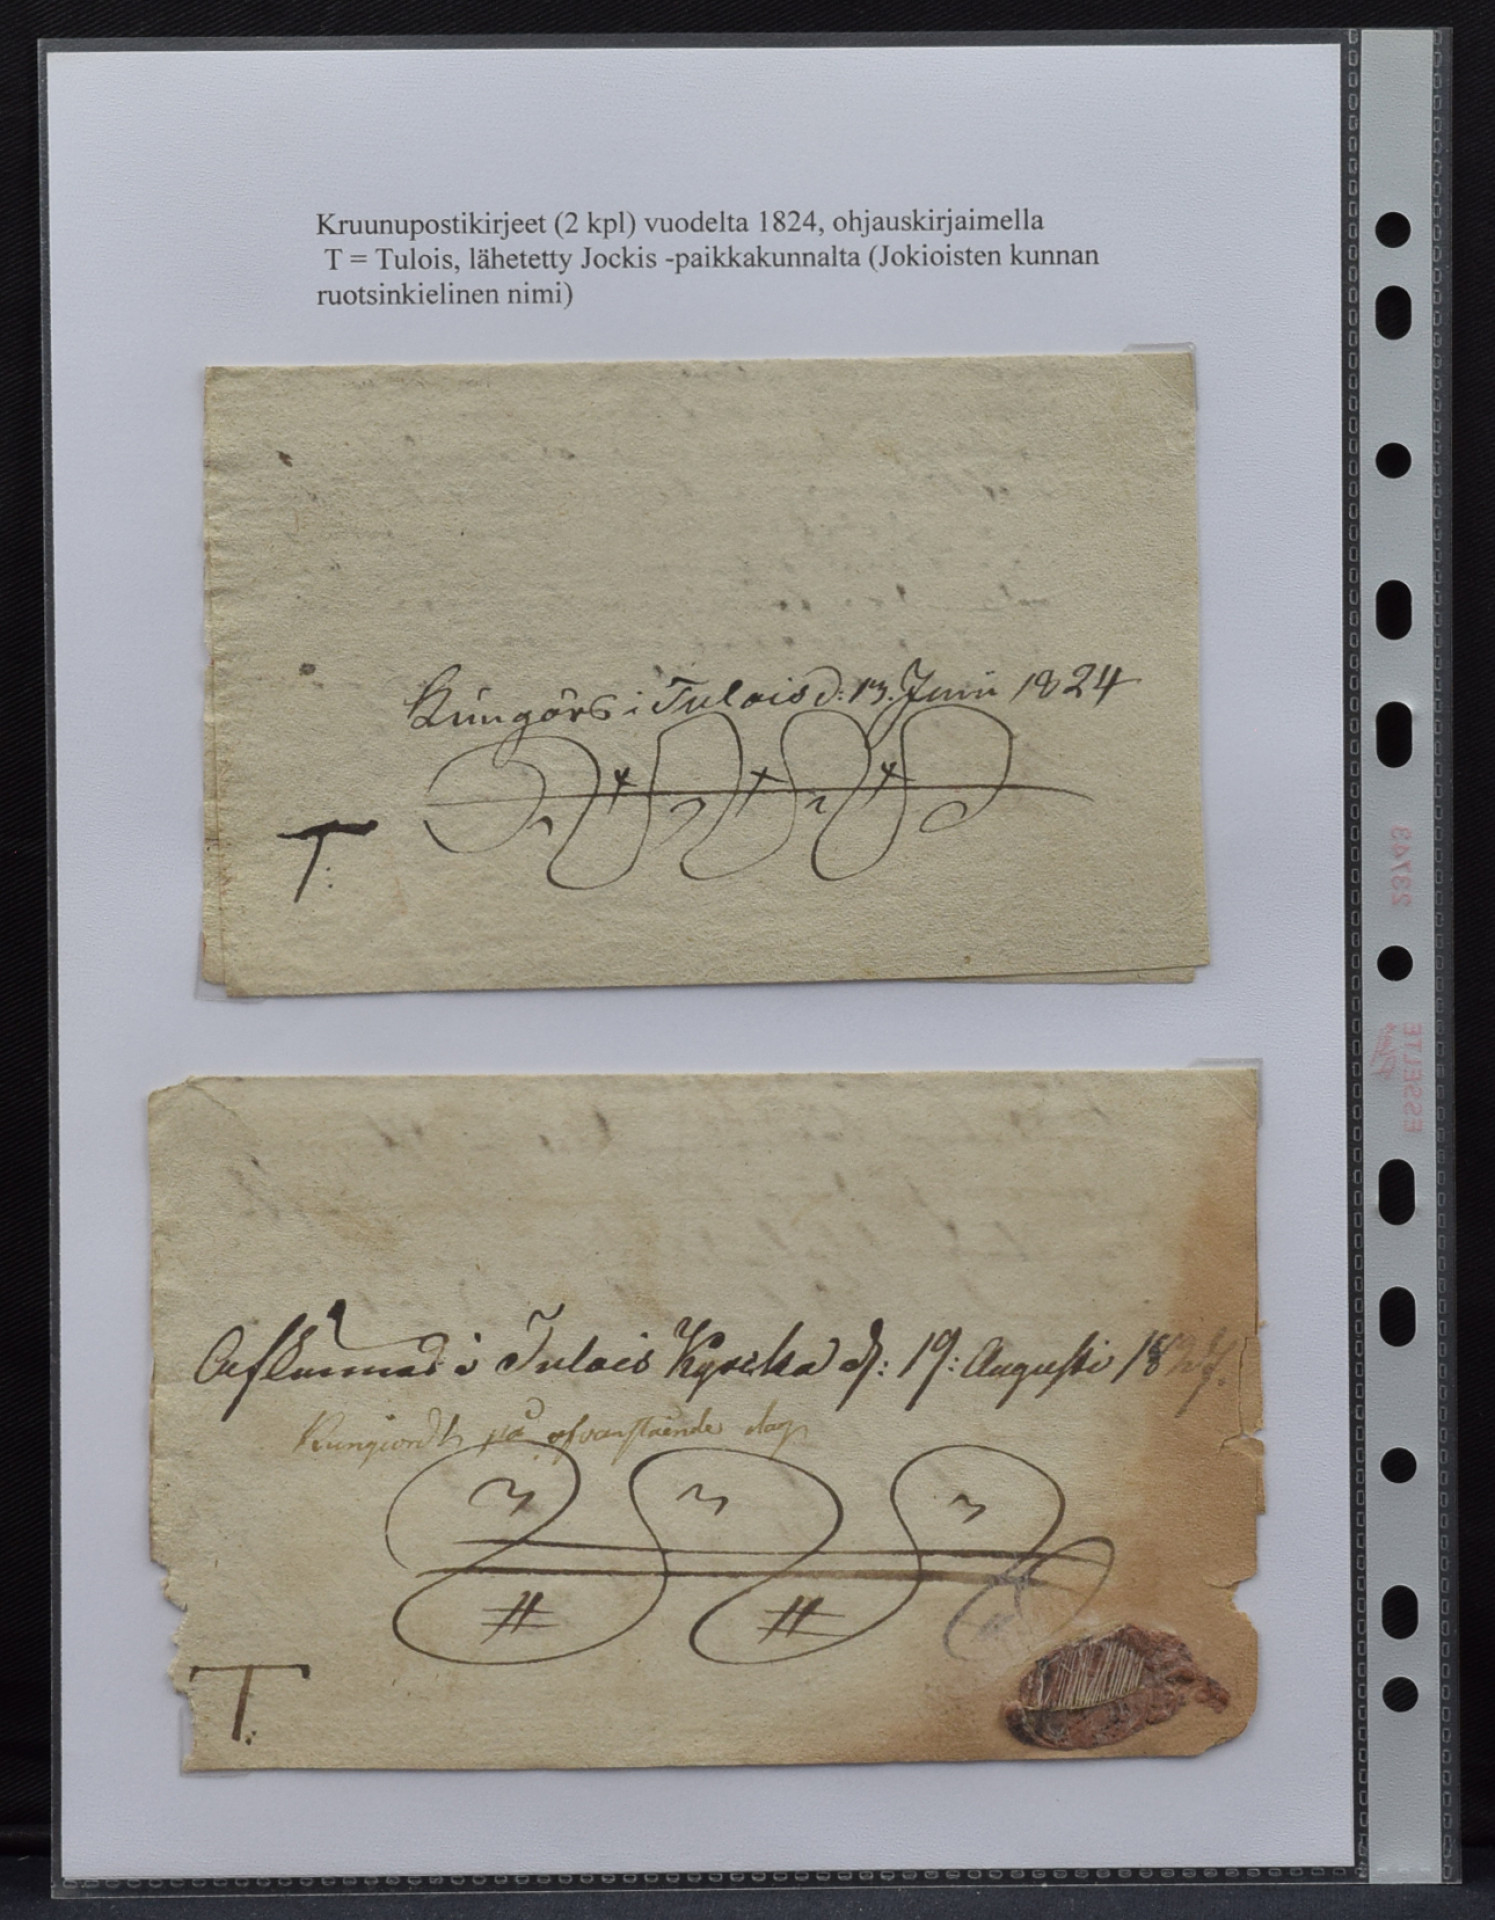 Kruunupostikirjeet (2 kpl) vuodelta 1824, ohjauskirjaimella
T = Tulois, lähetetty Jockis -paikkakunnalta (Jokioisten kunnan
ruotsinkielinen nimi)
Kungörs i Tulois d: 13. Junii 1824
T:
Aflemnad i Tulois Kyrcka d: 19: Augusti
på ofvanstående dag
T:
ESSELTE
23743